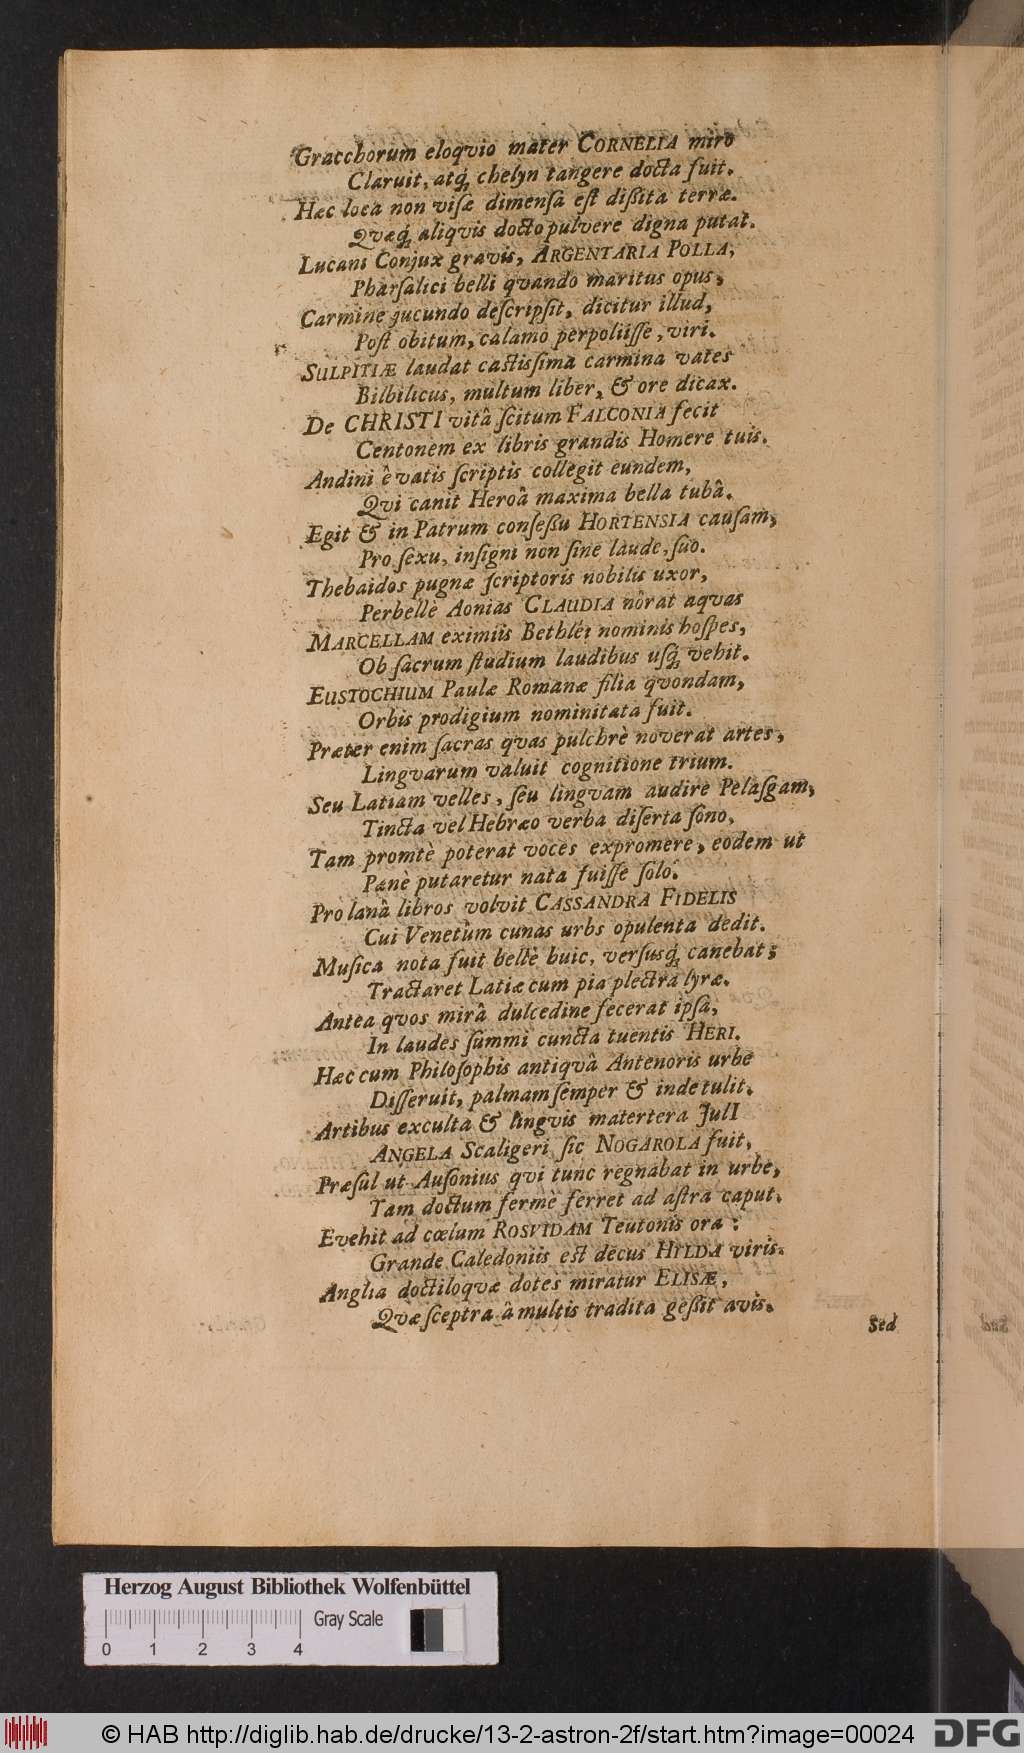 Gracchorum eloqvio mater CORNELIA miro
Claruit, atq́ chelyn tangere docta fuit.
Hæc loca non visæ dimensa est dißita terræ.
Qvæq́ aliqvis docto pulvere digna putat.
Lucani Conjux gravis, ARGENTARIA POLLA,
Pharsalici belli qvando maritus opus,
Carmine jucundo descripsit, dicitur illud,
Post obitum, calamo perpoliisse, viri.
SULPITIÆ laudat castissima carmina vates
Bilbilicus, multum liber, & ore dicax.
De CHRISTI vitâ scitum FALCONIA fecit
Centonem ex libris grandis Homere tuis.
Andini ê vatis scriptis collegit eundem,
Qvi canit Heroâ maxima bella tubâ.
Egit & in Patrum conseßu HORTENSIA causam,
Pro sexu, insigni non sine laude, suo.
Thebaidos pugnæ scriptoris nobilis uxor,
Perbellè Aonias CLAUDIA nôrat aqvas
MARCELLAM eximiis Bethlei nominis hospes,
Ob sacrum studium laudibus usq́ vehit.
EUSTOCHIUM Paulæ Romanæ filia qvondam,
Orbis prodigium nominitata fuit.
Præter enim sacras qvas pulchrè noverat artes,
Lingvarum valuit cognitione trium.
Seu Latiam velles, seu lingvam audire Pelasgam,
Tincta vel Hebræo verba diserta sono,
Tam promtè poterat voces expromere, eodem ut
Pænè putaretur nata fuisse solô.
Pro lanâ libros volvit CASSANDRA FIDELIS
Cui Venetûm cunas urbs opulenta dedit.
Musica nota fuit bellè huic, versusq́ canebat;
Tractaret Latiæ cum pia plectra lyræ.
Antea qvos mirâ dulcedine fecerat ipsa,
In laudes summi cuncta tuentis HERI.
Hæc cum Philosophis antiqvâ Antenoris urbe
Disseruit, palmam semper & inde tulit.
Artibus exculta & lingvis matertera JulI
ANGELA Scaligeri sic NOGAROLA fuit,
Præsul ut Ausonius qvi tunc regnabat in urbe,
Tam doctum fermè ferret ad astra caput.
Evehit ad cœlum ROSVIDAM Teutonis ora:
Grande Caledoniis est decus HILDA viris.
Anglia doctiloqvæ dotes miratur ELISÆ,
Qvæ sceptra â multis tradita geßit avis.
Sed
Herzog August Bibliothek Wolfenbüttel
Gray Scale
0 1 2 3 4
© HAB http://diglib.hab.de/drucke/13-2-astron-2f/start.htm?image=00024
DFG